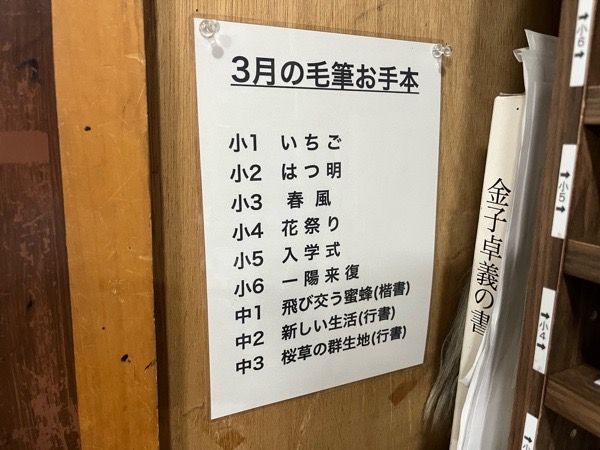 3月の毛筆お手本
小1 いちご
小2 はつ明
小3 春風
小4 花祭り
小5 入学式
小6 一陽来復
中1 飛び交う蜜蜂(楷書)
中2 新しい生活(行書)
中3 桜草の群生地(行書)
金子卓義の書
←小6→
←小5→
←小4→